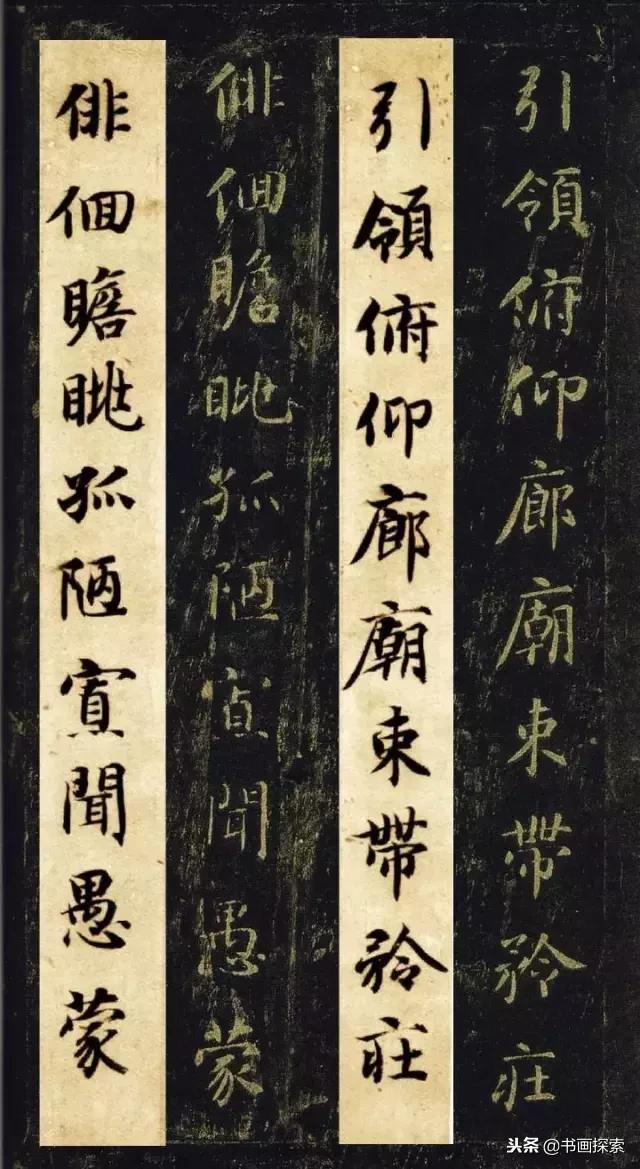 引領俯仰廊廟束帶矜莊
引領俯仰廊廟束帶矜莊
俳佪瞻眺孤陋寡聞愚蒙
俳佪瞻眺孤陋寡聞愚蒙
头条 @书画探索